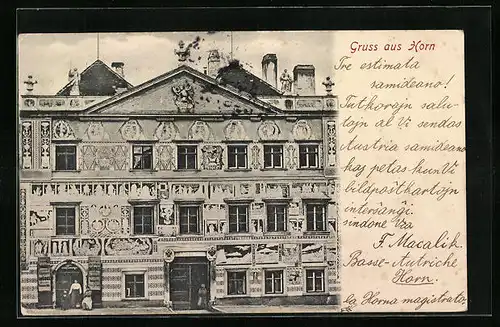 Gruss aus Horn
Tre estimata
samideano!
Tutkorajn salu-
tojn al Vi sendas
Austria samideano
kaj petas kun Vi
bildpoŝtkartojn
interŝanĝi.
sindone Via
F. Macalik
Basse-Autriche
Horn.
la Horna magistrato